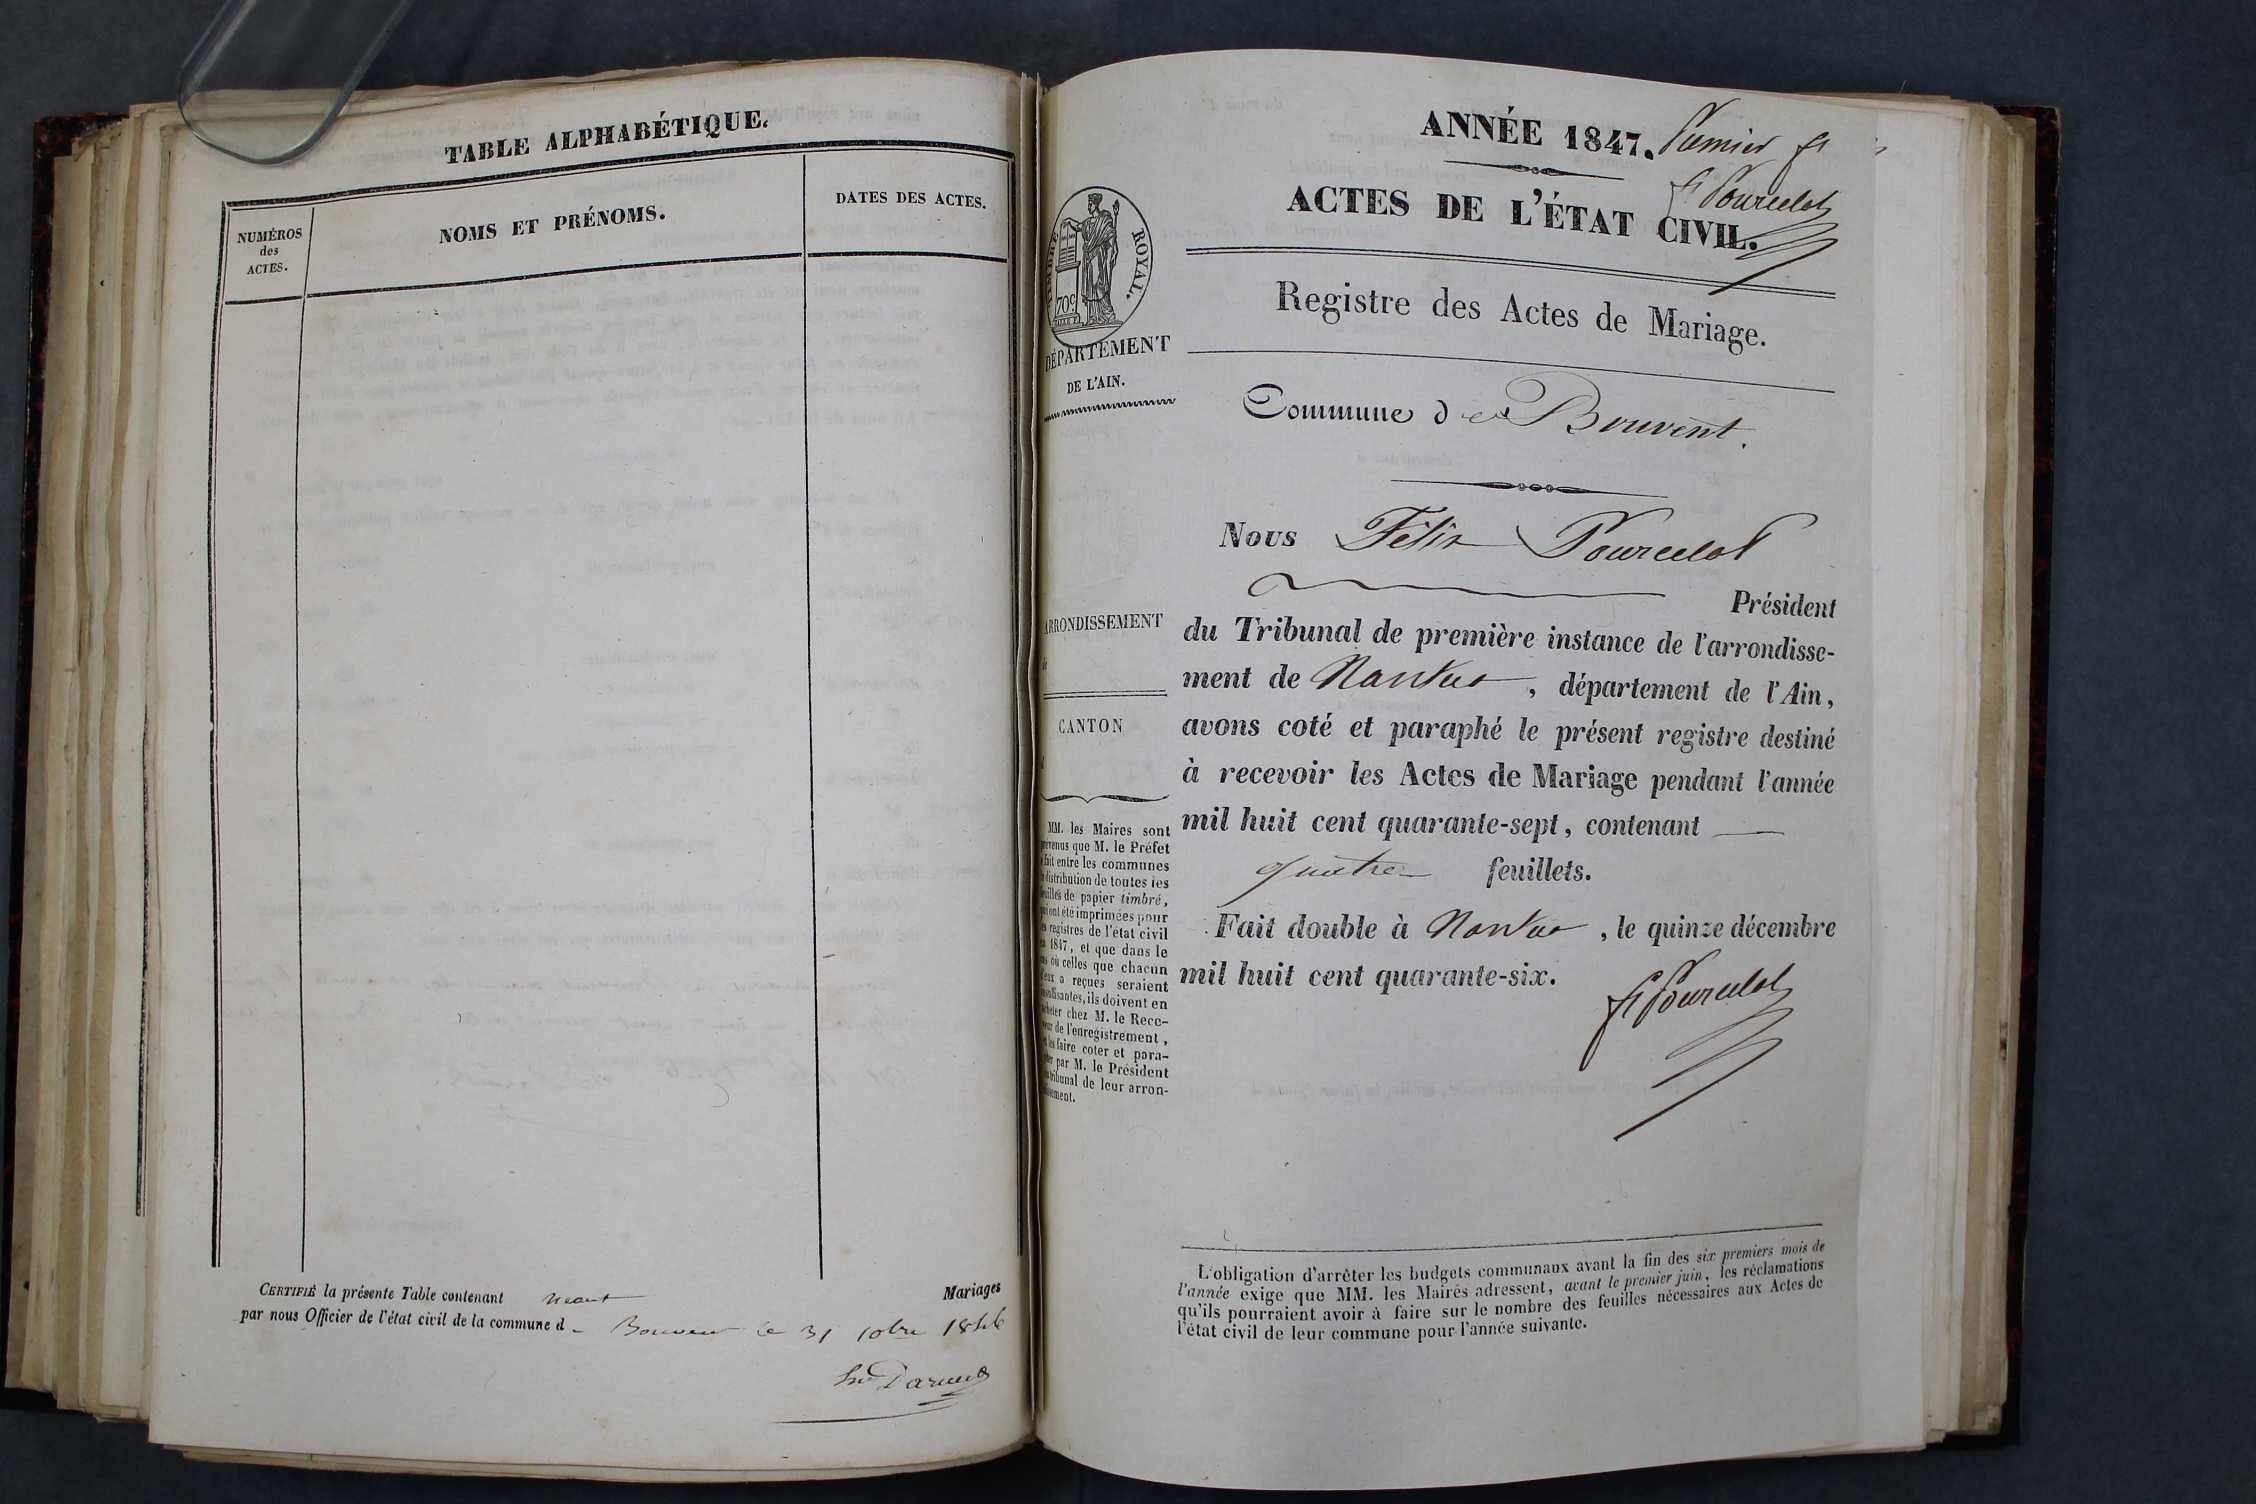 TABLE ALPHABÉTIQUE.
NUMÉROS
des
ACTES.
NOMS ET PRÉNOMS.
DATES DES ACTES.
CERTIFIÉ la présente Table contenant neant Mariages
par nous Officier de l'état civil de la commune d Bouvent le 31 10bre 1846
ANNÉE 1847. Premier ft
F. Pourcelot
ACTES DE L'ÉTAT CIVIL.
Registre des Actes de Mariage.
TIMBRE ROYAL.
70c
DÉPARTEMENT
DE L'AIN.
Commune de Bouvent.
Nous Félix Pourcelot
Président
du Tribunal de première instance de l'arrondisse-
ment de Nantua, département de l'Ain,
avons coté et paraphé le présent registre destiné
à recevoir les Actes de Mariage pendant l'année
mil huit cent quarante-sept, contenant
quatre feuillets.
Fait double à Nantua, le quinze décembre
mil huit cent quarante-six.
F. Pourcelot
ARRONDISSEMENT
CANTON
MM. les Maires sont
prévenus que M. le Préfet
a fait entre les communes
la distribution de toutes les
feuilles de papier timbré,
qui ont été imprimées pour
les registres de l'état civil
en 1847, et que dans le
cas où celles que chacun
d'eux a reçues seraient
insuffisantes, ils doivent en
acheter chez M. le Rece-
veur de l'enregistrement,
et les faire coter et para-
pher par M. le Président
du tribunal de leur arron-
dissement.
L'obligation d'arrêter les budgets communaux avant la fin des six premiers mois de
l'année exige que MM. les Maires adressent, avant le premier juin, les réclamations
qu'ils pourraient avoir à faire sur le nombre des feuilles nécessaires aux Actes de
l'état civil de leur commune pour l'année suivante.